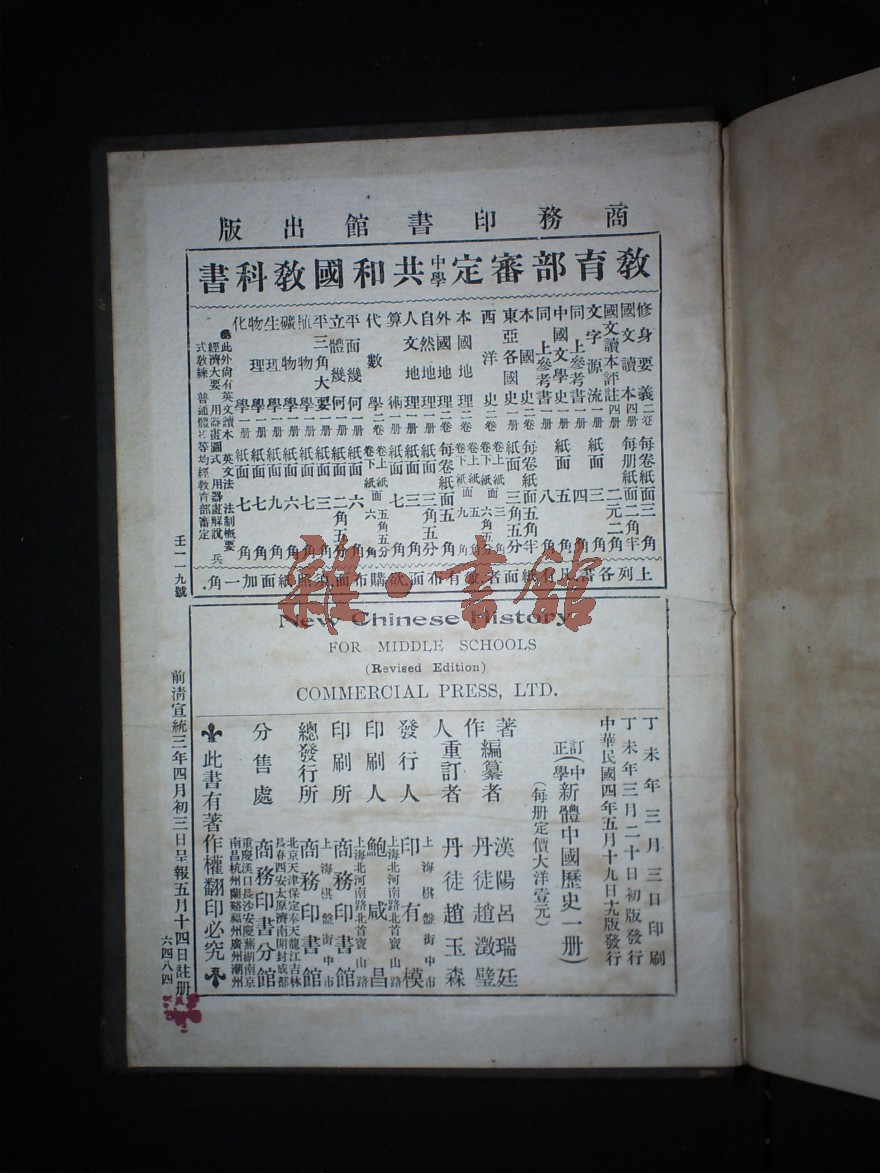 商務印書館出版
教育部審定中學共和國教科書
修身要義二卷 每卷紙面三角
國文讀本四册 每册紙面二角半
國文讀本評註四册 二元二角
文字源流一册 紙面三角
同上參考書一册 四角
中國文學史一册 紙面五角
同上參考書一册 八角
本國史二卷 每卷紙面五角半
東亞各國史一册 紙面三角五分
西洋史二卷 卷上紙面三角 卷下紙面六角五分
本國地理二卷 卷上紙面五角 卷下紙面九角
外國地理二卷 每卷紙面五角
自然地理一册 紙面三角五分
人文地理一册 紙面三角
算術一册 紙面七角
代數學二卷 卷上紙面五角五分 卷下紙面六角
平面幾何一册 紙面六角
立體幾何一册 紙面二角五分
平三角大要一册 紙面三角
植物學一册 紙面七角
礦物學一册 紙面六角
生理學一册 紙面九角
物理學一册 紙面七角
化學一册 紙面七角
此外尚有英文讀本 英文法 法制概要
經濟大要 用器畫圖式 用器畫解說 兵
式教練 普通體操等均經教育部審定
上列各書,只有紙面者,並有布面,欲購布面,須照紙面加一角.
壬一一九號
雜·書館
New Chinese History
FOR MIDDLE SCHOOLS
(Revised Edition)
COMMERCIAL PRESS, LTD.
丁未年三月三日印刷
丁未年三月二十日初版發行
中華民國四年五月十九日九版發行
訂正(中學新體中國歷史一册)
(每册定價大洋壹元)
著作人
編纂者 漢陽呂瑞廷 丹徒趙澂璧
重訂者 丹徒趙玉森
發行人 印有模
上海棋盤街中市
印刷人 鮑咸昌
上海北河南路北首寶山路
印刷所 商務印書館
上海北河南路北首寶山路
總發行所 商務印書館
上海棋盤街中市
分售處 商務印書分館
北京天津保定奉天龍江吉林
長春西安太原濟南開封成都
重慶漢口長沙安慶蕪湖南京
南昌杭州蘭谿福州廣州潮州
此書有著作權翻印必究
前清宣統三年四月初三日呈報五月十四日註册
六四八四